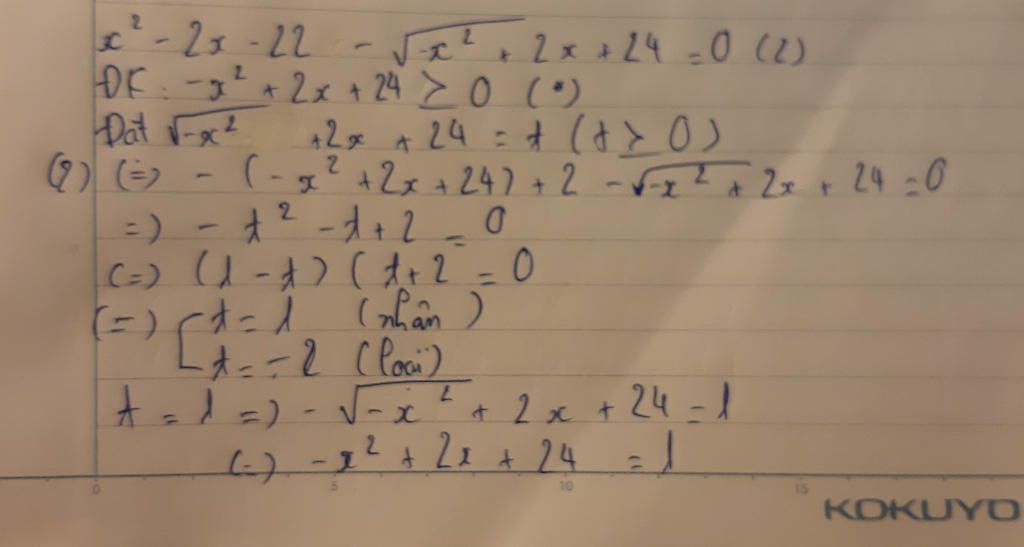 x² - 2x - 22 - √(-x² + 2x + 24) = 0 (2)
ĐK: -x² + 2x + 24 ≥ 0 (*)
Đặt √(-x² + 2x + 24) = t (t ≥ 0)
(2) (=) - (-x² + 2x + 24) + 2 - √(-x² + 2x + 24) = 0
=) - t² - t + 2 = 0
(=) (1 - t) (t + 2 = 0
(=) [ t = 1 (nhận)
t = -2 (loại)
t = 1 =) - √(-x² + 2x + 24) = 1
(=) -x² + 2x + 24 = 1
0 5 10 15
KOKUYO